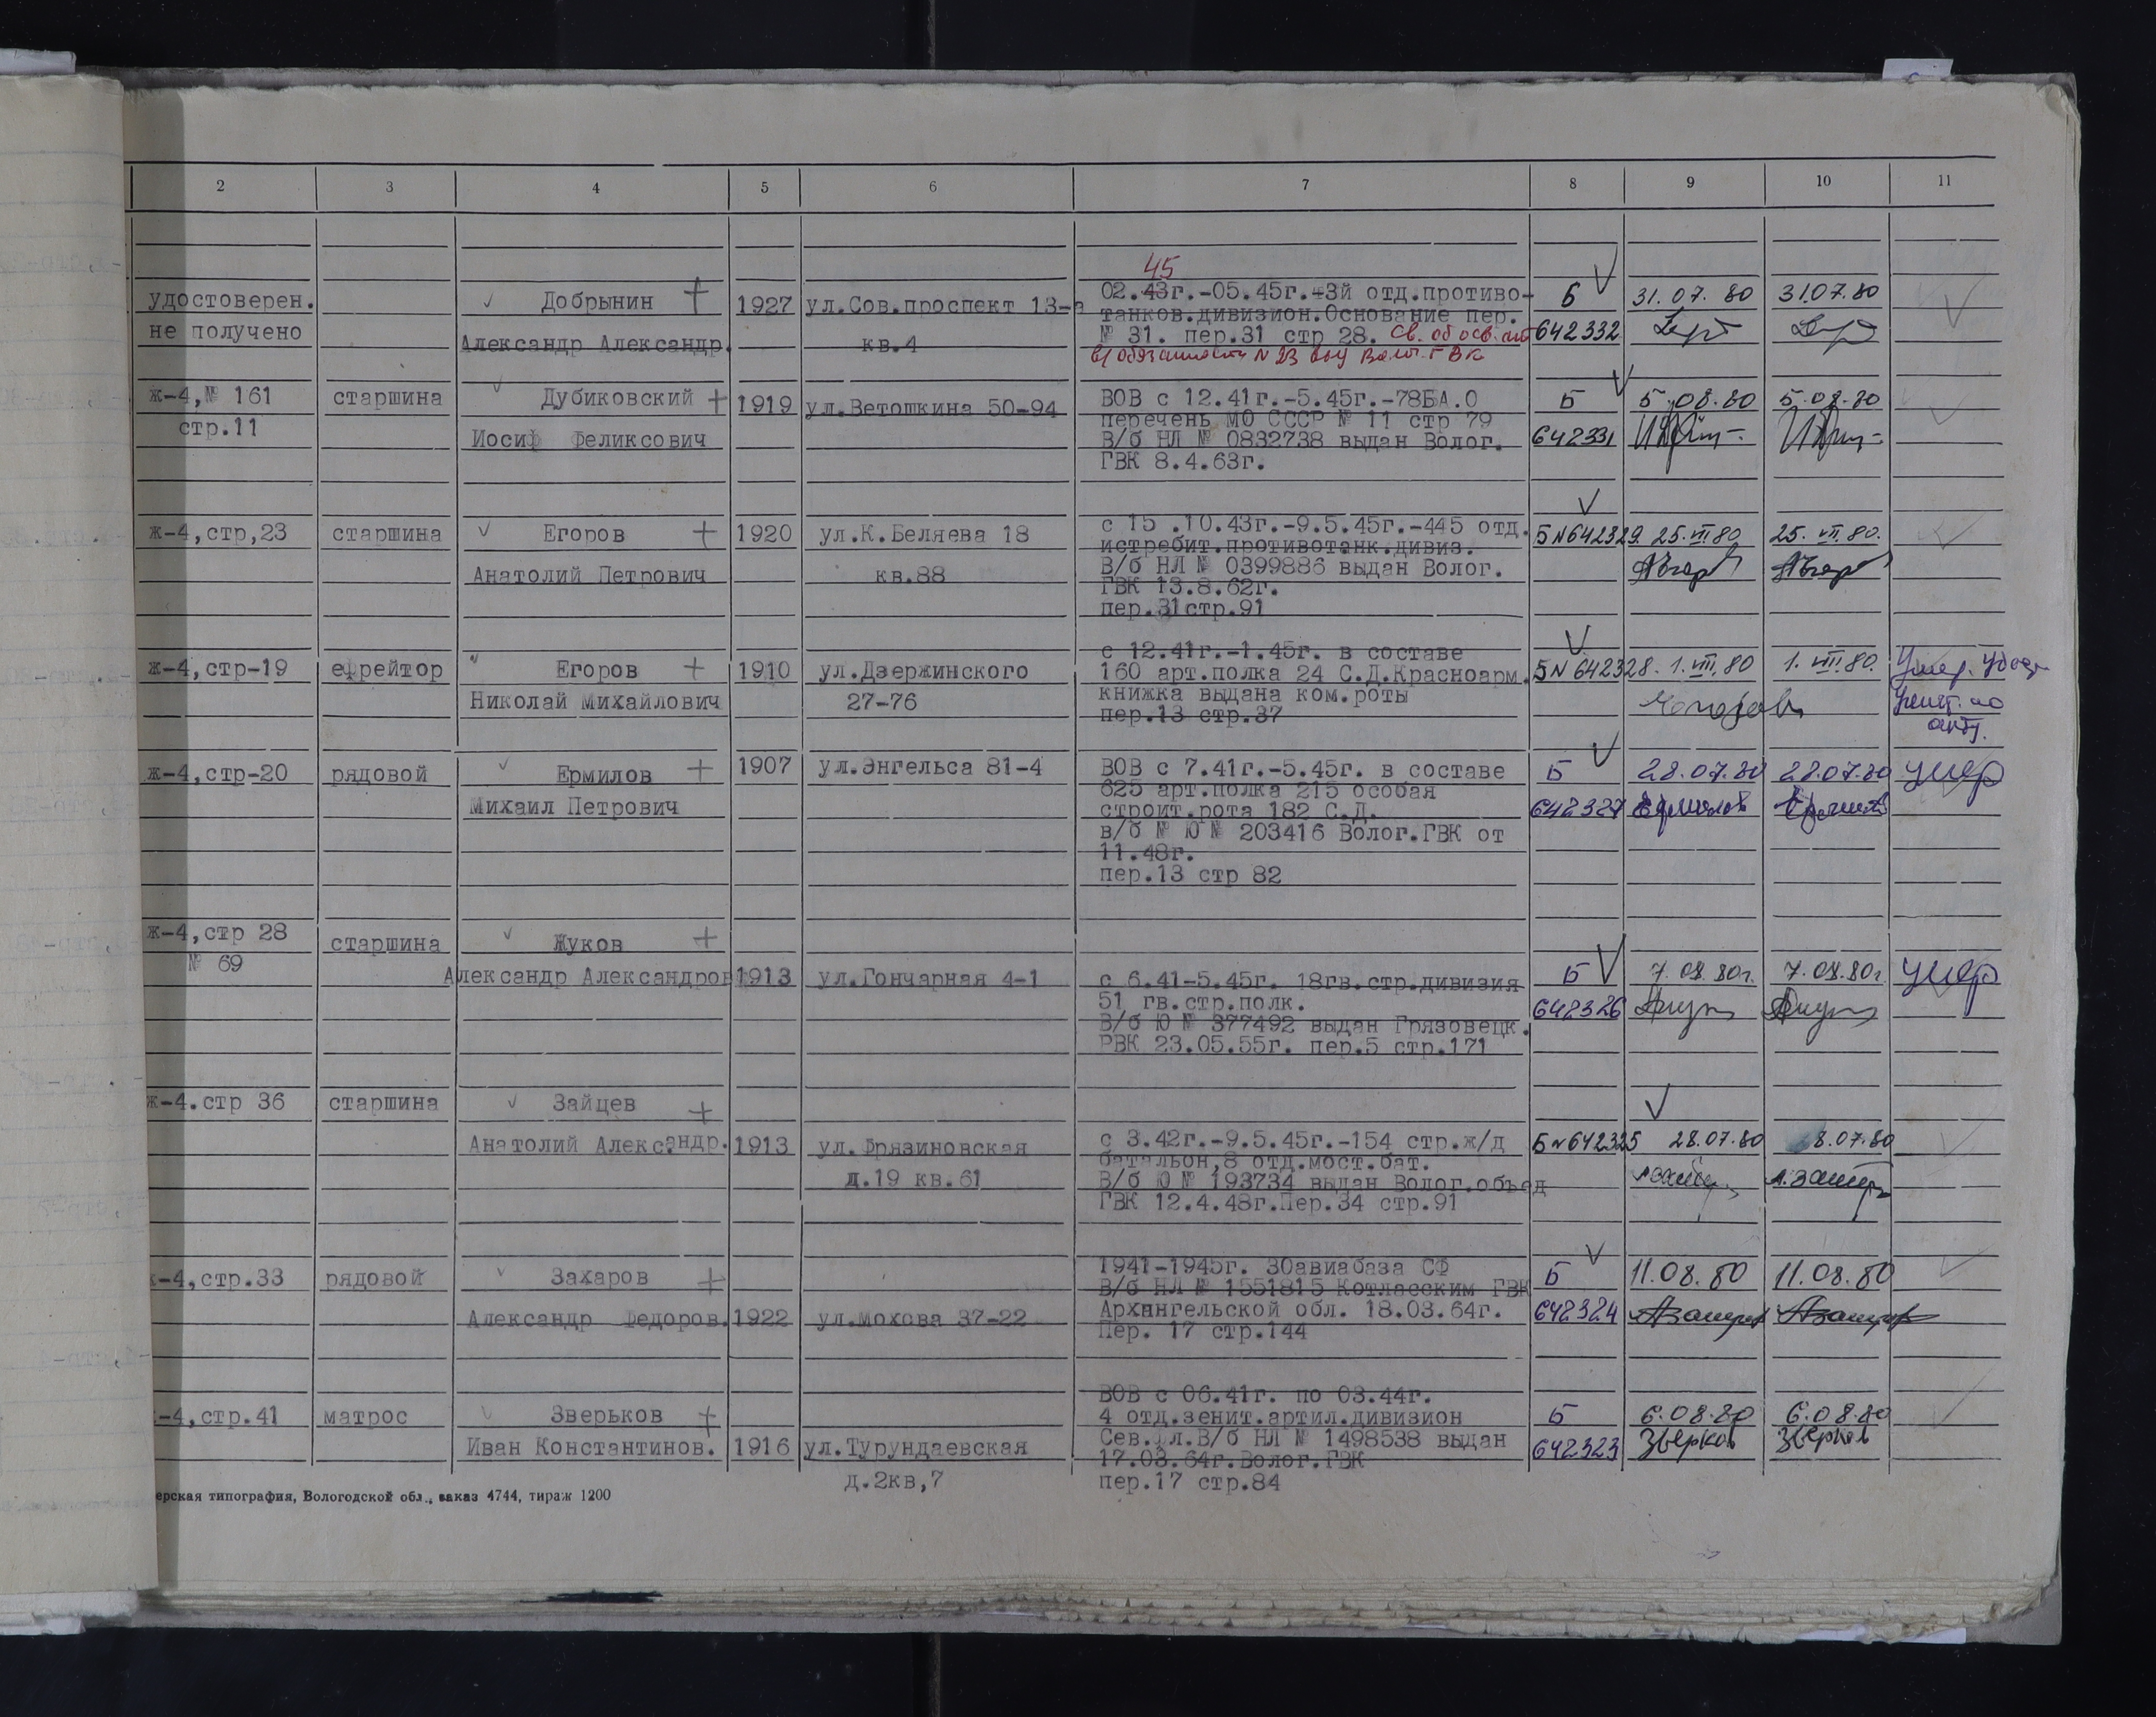 2 3 4 5 6 7 8 9 10 11
45
удостоверен. Добрынин + 1927 ул.Сов.проспект 13- 02.43г.-05.45г.-3й отд.противо- Б 31.07.80 31.07.80
танков.дивизион.Основание пер.
не получено Александр Александр. кв.4 № 31. пер.31 стр 28. Св. об осв. 642332
в/обязанности N 23 Волог. ГВК
ж-4,№ 161 старшина Дубиковский + 1919 ул.Ветошкина 50-94 ВОВ с 12.41г.-5.45г.-78БА.О Б 5.08.80 5.08.80
перечень МО СССР № 11 стр 79
стр.11 Иосиф Феликсович В/б НЛ № 0832738 выдан Волог. 642331
ГВК 8.4.63г.
ж-4,стр,23 старшина Егоров + 1920 ул.К.Беляева 18 с 15 .10.43г.-9.5.45г.-445 отд. Б N642329. 25.VII.80 25.VII.80.
истребит.противотанк.дивиз.
Анатолий Петрович кв.88 В/б НЛ № 0399886 выдан Волог.
ГВК 13.8.62г.
пер.31стр.91
с 12.41г.-1.45г. в составе
ж-4,стр-19 ефрейтор Егоров + 1910 ул.Дзержинского 160 арт.полка 24 С.Д.Красноарм. Б N 642328. 1.VIII.80 1.VIII.80. Умер. Удост
Николай Михайлович 27-76 книжка выдана ком.роты по
пер.13 стр.37 акту.
ж-4,стр-20 рядовой Ермилов + 1907 ул.Энгельса 81-4 ВОВ с 7.41г.-5.45г. в составе Б 28.07.80 28.07.80 умер
625 арт.полка 215 особая
Михаил Петрович строит.рота 182 С.Д. 642327
в/б № Ю № 203416 Волог.ГВК от
11.48г.
пер.13 стр 82
ж-4,стр 28 старшина Жуков +
№ 69 Александр Александров 1913 ул.Гончарная 4-1 с 6.41-5.45г. 18гв.стр.дивизия Б 7.08.80г. 7.08.80г. умер
51 гв.стр.полк. 642326
В/б Ю № 377492 выдан Грязовецк.
РВК 23.05.55г. пер.5 стр.171
ж-4.стр 36 старшина Зайцев +
Анатолий Александр. 1913 ул.Фрязиновская с 3.42г.-9.5.45г.-154 стр.ж/д Б N642325 28.07.80 28.07.80
батальон,8 отд.мост.бат.
д.19 кв.61 В/б Ю № 193734 выдан Волог.объед
ГВК 12.4.48г.Пер.34 стр.91
1941-1945г. 30авиабаза СФ
ж-4,стр.33 рядовой Захаров + В/б НЛ № 1551815 Котласским ГВК Б 11.08.80 11.08.80
Александр Федоров. 1922 ул.мохова 37-22 Архангельской обл. 18.03.64г. 642324
Пер. 17 стр.144
ВОВ с 06.41г. по 03.44г.
-4,стр.41 матрос Зверьков + 4 отд.зенит.артил.дивизион Б 6.08.80 6.08.80
Иван Константинов. 1916 ул.Турундаевская Сев.фл.В/б НЛ № 1498538 выдан 642323 Зверков Зверков
17.03.64г.Волог.ГВК
д.2кв,7 пер.17 стр.84
ерская типография, Вологодской обл., заказ 4744, тираж 1200